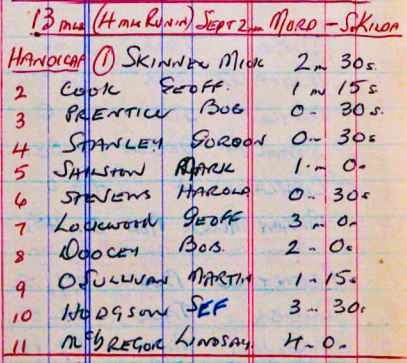 13 mls (4 mls Run in) Sept 2nd Mord - St Kilda
Handicap 1 Skinner Mick 2 m 30s
2 Cook Geoff 1 m 15s
3 Prentice Bob 0 - 30s.
4 Stanley Gordon 0 - 30s
5 Shilston Mark 1 - 0 -
6 Stevens Harold 0 - 30s
7 Lockwood Geoff 3 - 0 -
8 Doocey Bob. 2 - 0s
9 O'Sullivan Martin 1 - 15s
10 Hodgson Sef 3 - 30s
11 McGregor Lindsay 4 - 0 -